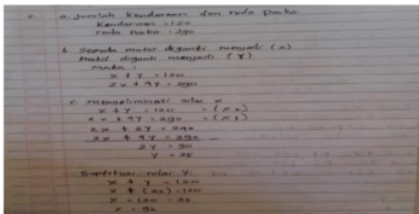 a. Jumlah kendaraan dan roda parkir
Kendaraan = 120
roda parkir = 290
b. Sepeda motor diganti menjadi (x)
Mobil diganti menjadi (y)
maka :
x + y = 120
2x + 4y = 290
c. Mengeliminasi nilai x
x + y = 120 (x2)
2x + 4y = 290 (x1)
2x + 2y = 240
2x + 4y = 290
2y = 50
y = 25
Subtitusi nilai y
x + y = 120
x + (25) = 120
x = 120 - 25
x = 95